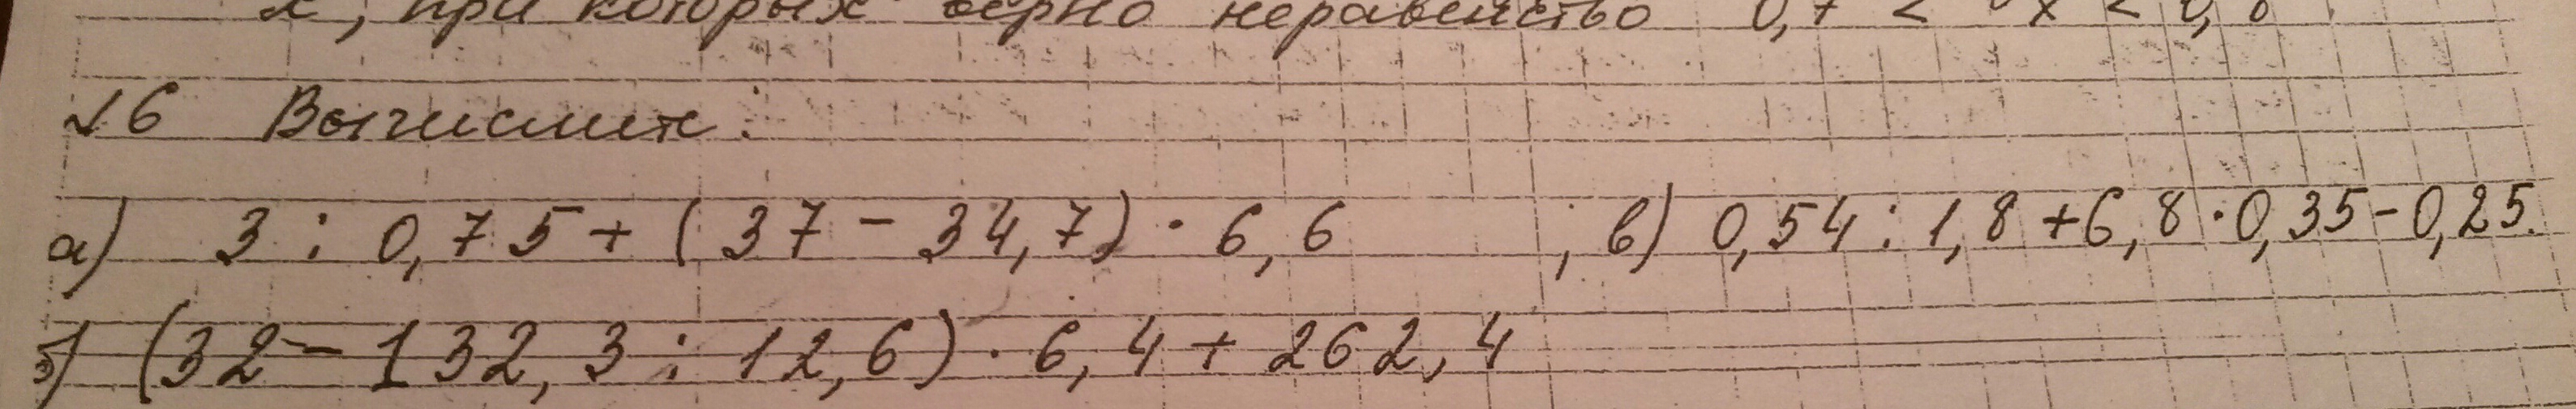 х, при которых верно неравенство 0,7 < x < 0,8
№6 Вычислите:
а) 3 : 0,75 + (37 - 34,7) · 6,6 ; в) 0,54 : 1,8 + 6,8 · 0,35 - 0,25.
б) (32 - 132,3 : 12,6) · 6,4 + 262,4